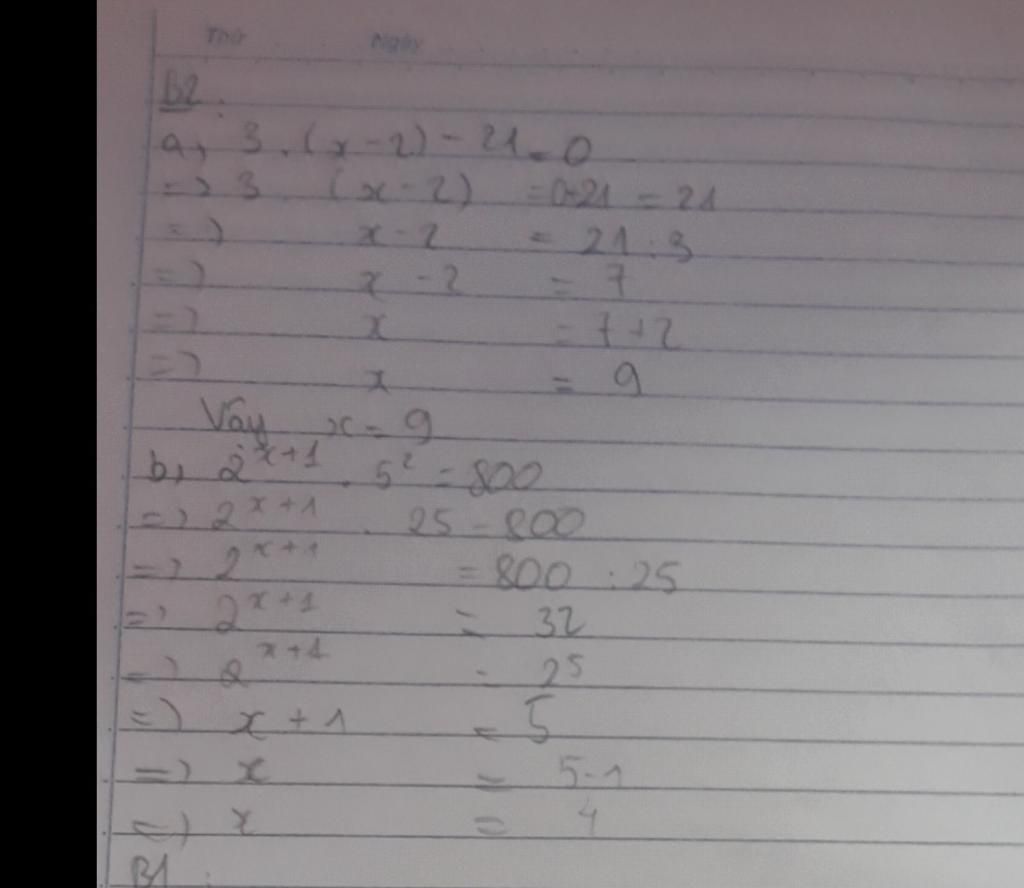 Thứ Ngày
B2.
a, 3. (x-2) - 21 = 0
=> 3 (x-2) = 0+21 = 21
=> x-2 = 21:3
=> x-2 = 7
=> x = 7+2
=> x = 9
Vậy x = 9
b, 2^{x+1} . 5² = 800
=> 2^{x+1} . 25 = 800
=> 2^{x+1} = 800 : 25
=> 2^{x+1} = 32
=> 2^{x+1} = 2⁵
=> x+1 = 5
=> x = 5-1
=> x = 4
B1: